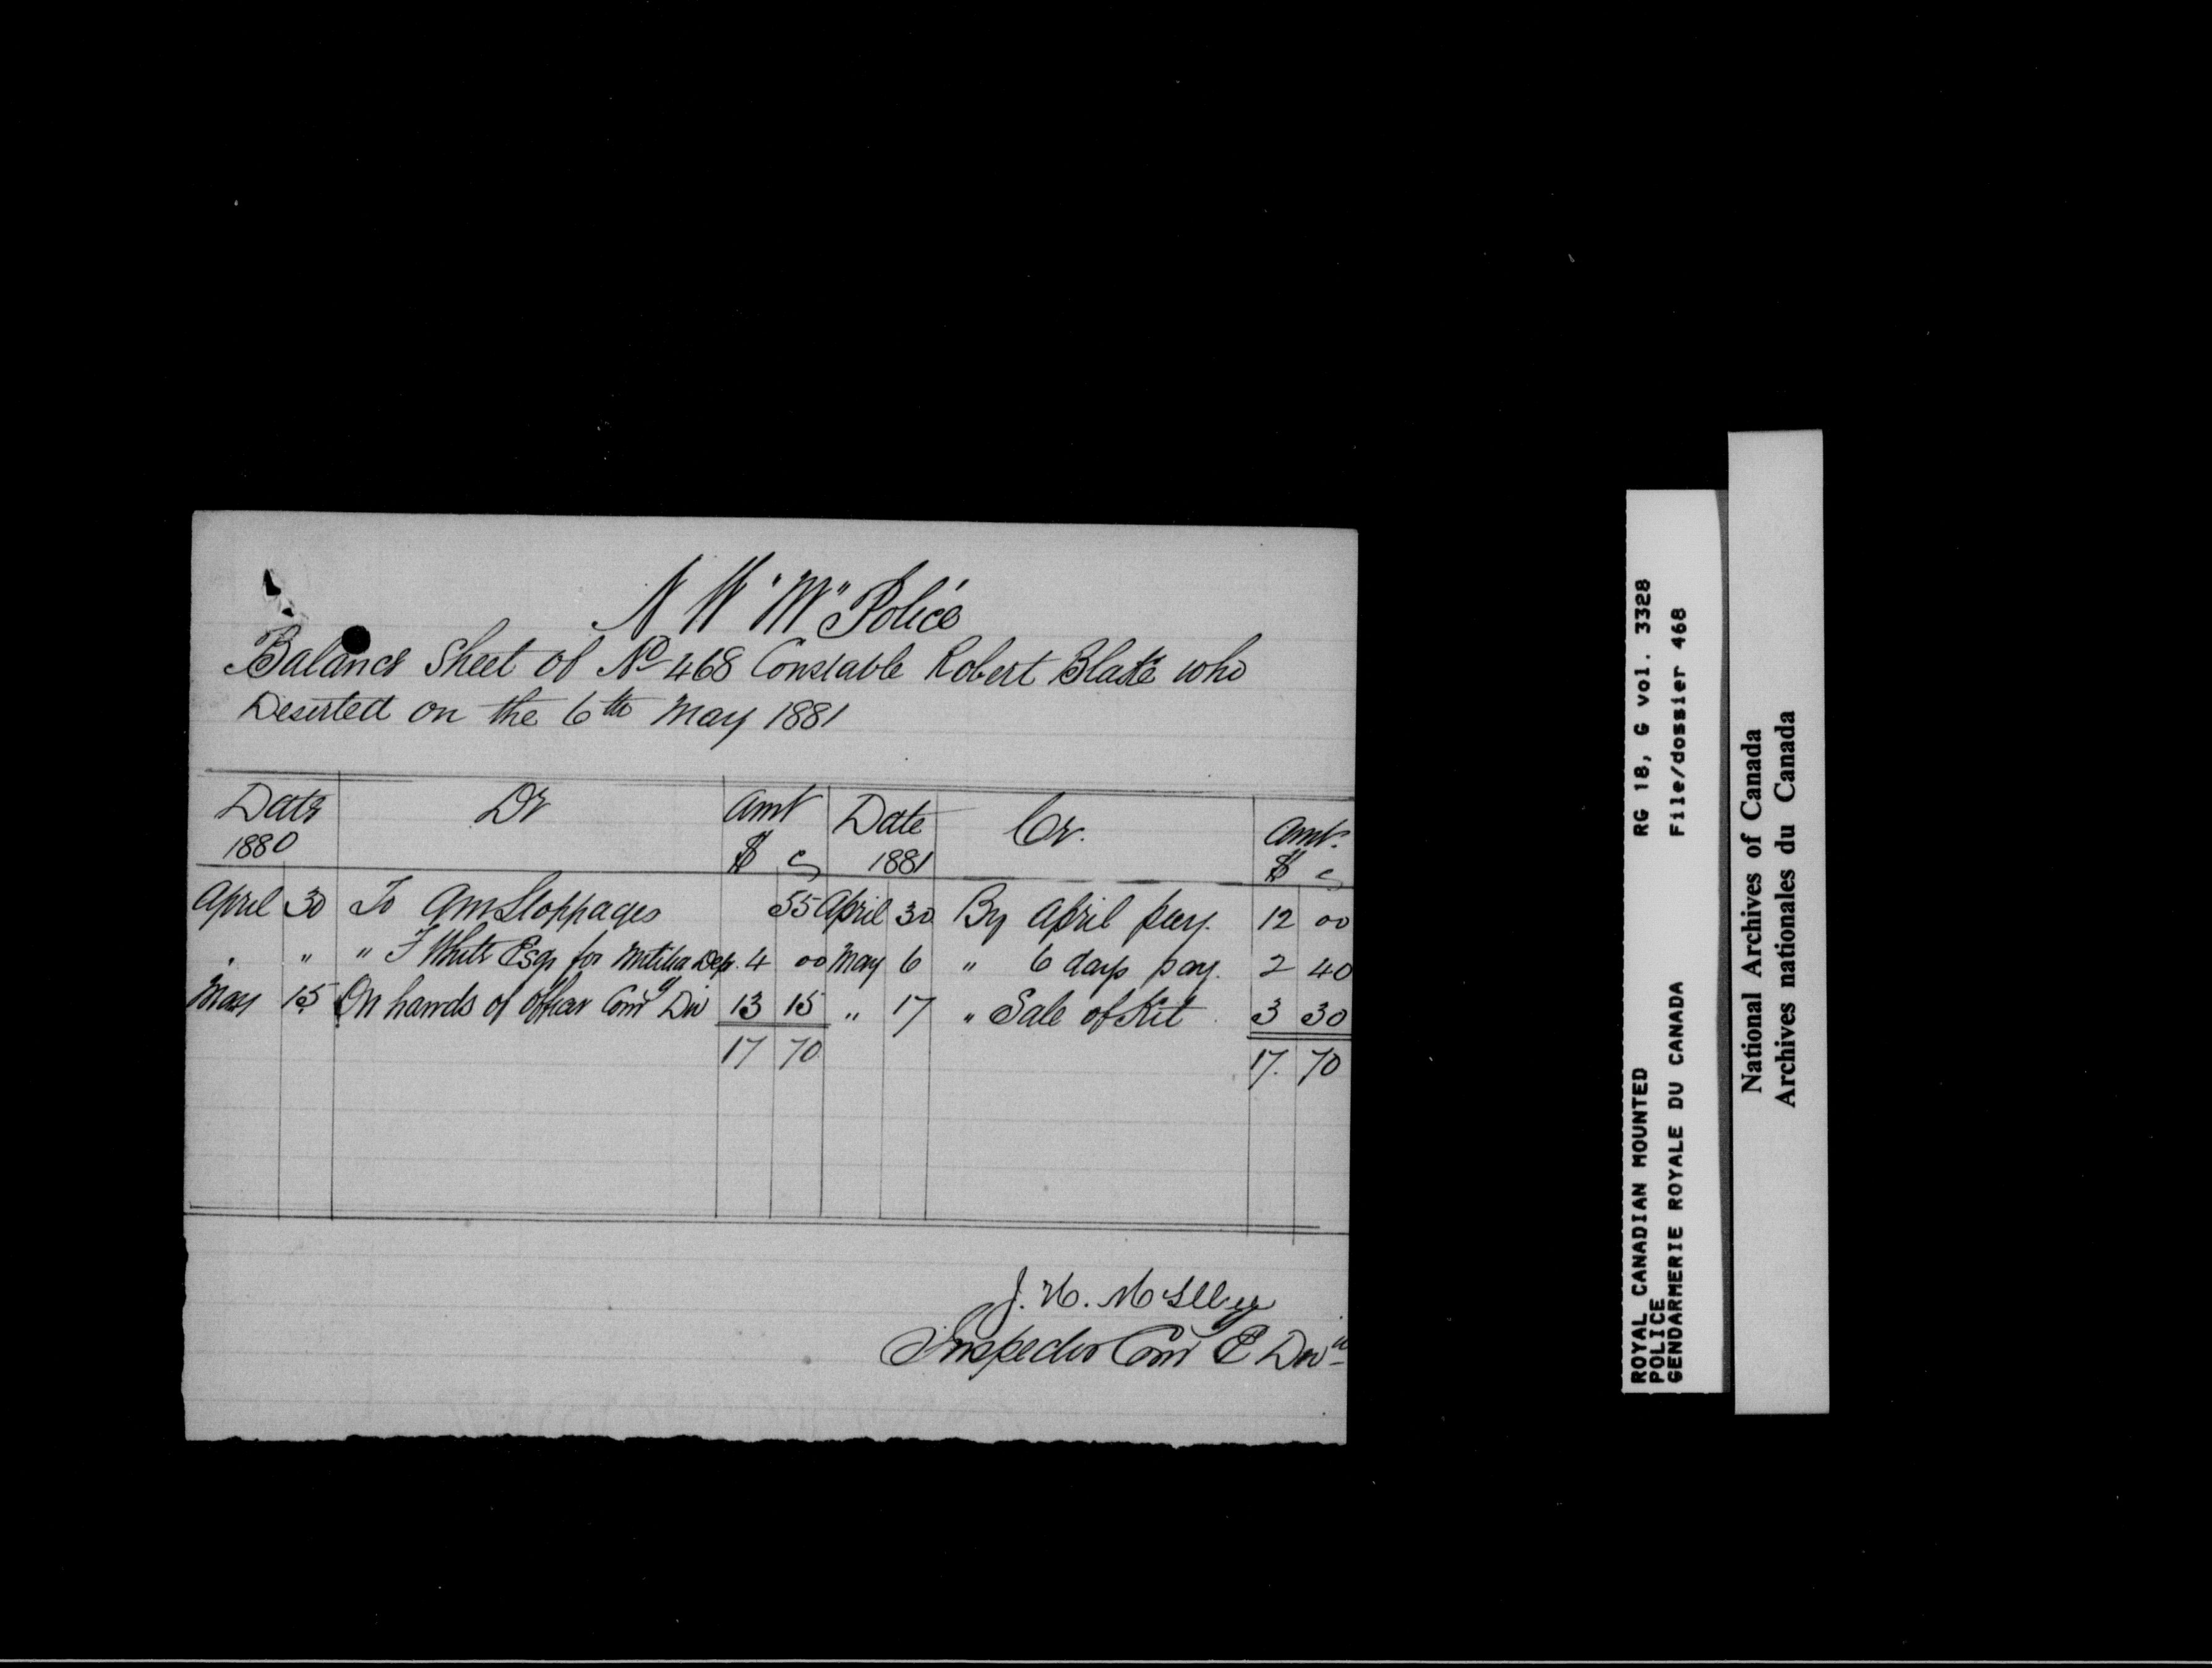 N W "M" Police
Balance Sheet of No 468 Constable Robert Blake who
Deserted on the 6th May 1881
Date 1880 Dr Amt $ c Date 1881 Cr. Amt. $ c
April 30 To Qm Stoppages 55 April 30 By April pay. 12 00
" " " F White Esqr for Militia Dep. 4 00 May 6 " 6 days pay. 2 40
May 15 On hands of Officer Comg Div 13 15 " 17 " Sale of Kit 3 30
17 70 17. 70
J. H. McIllree
Inspector Comg E Divn
ROYAL CANADIAN MOUNTED RG 18, G vol. 3328
POLICE
GENDARMERIE ROYALE DU CANADA File/dossier 468
National Archives of Canada
Archives nationales du Canada